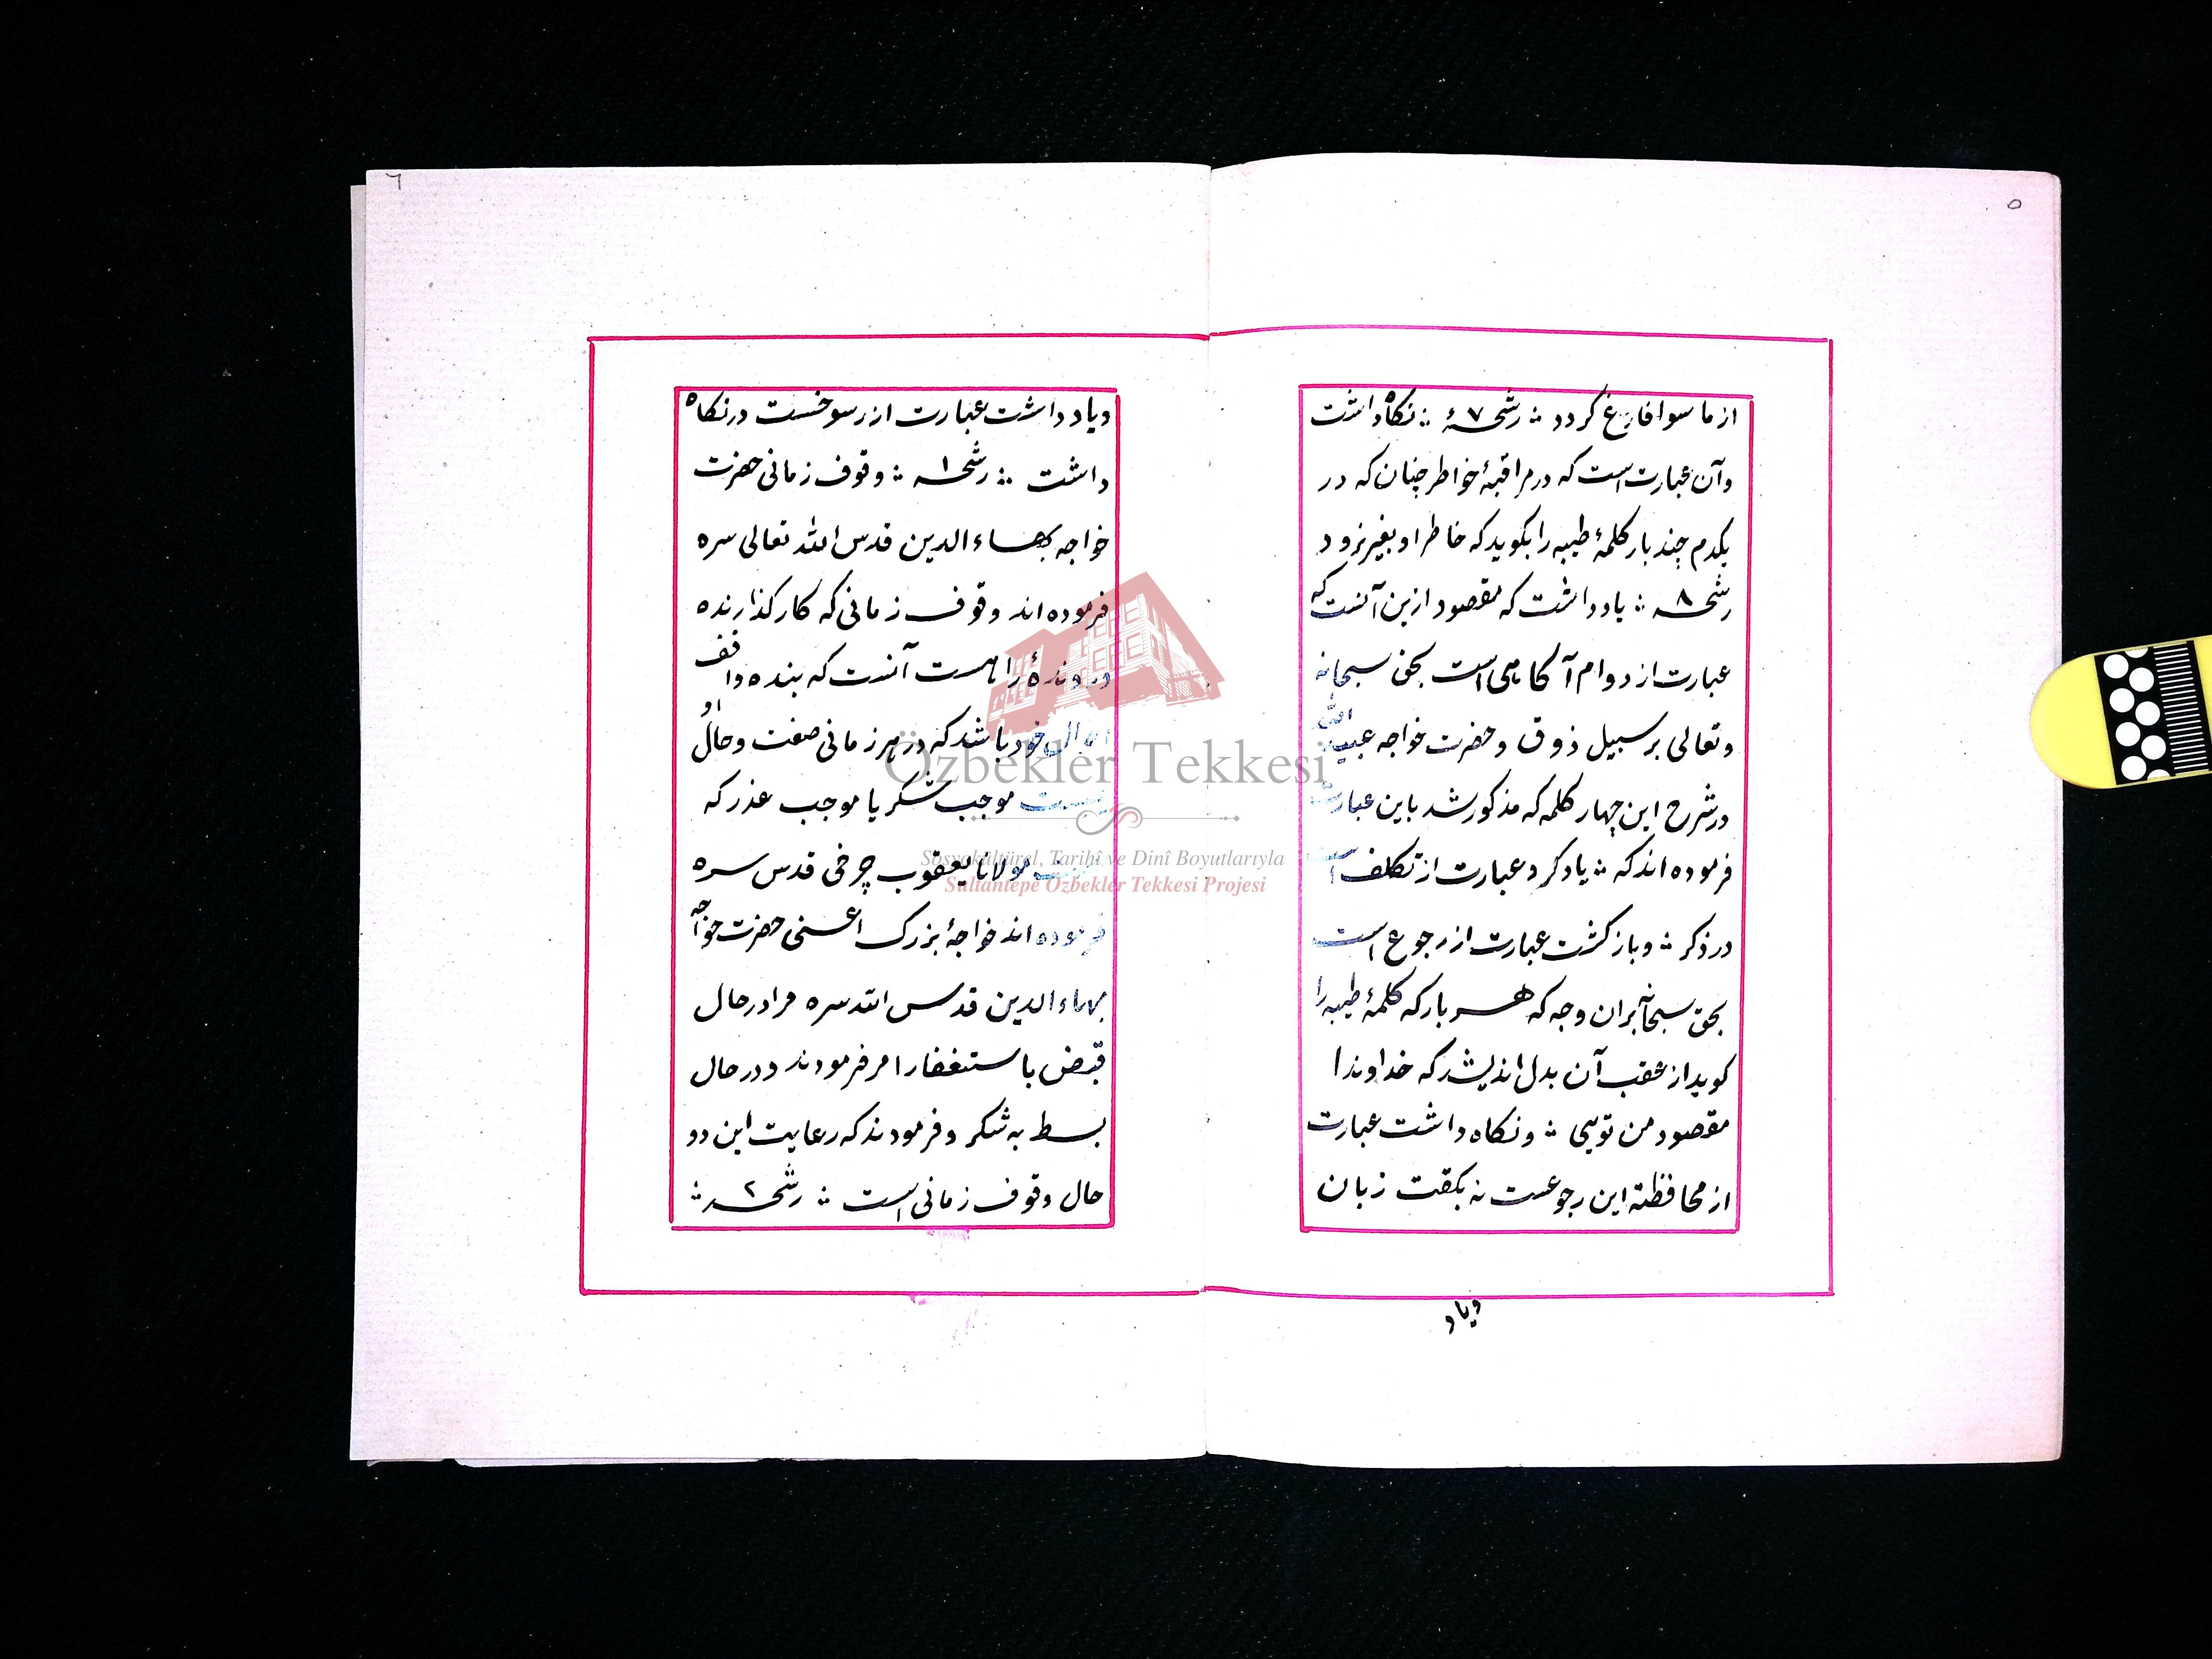 ٥
از ما سوا فارغ كردد ؞ رشحهٔ ٧ ؞ نكاه داشت
وآن عبارت است كه در مراقبهٔ خواطر چنان كه در
يكدم چند بار كلمهٔ طيبه را بكويد كه خاطر او بغير نرود
رشحه ٨ ؞ ياد داشت كه مقصود ازين آنست كه
عبارت از دوام آكاهى است بحق سبحانه
وتعالى بر سبيل ذوق وحضرت خواجه عبيد الله
در شرح اين چهار كلمه كه مذكور شد باين عبارت
فرموده اند كه ؞ ياد كرد عبارت از تكلف است
در ذكر ؞ وباز كشت عبارت از رجوع است
بحق سبحانه بران وجه كه هر بار كه كلمهٔ طيبه را
كويد از عقب آن بدل انديشد كه خداوندا
مقصود من تويى ؞ ونكاه داشت عبارت
از محافظهٔ اين رجوعست نه بكفت زبان
وياد
٦
وياد داشت عبارت از رسوخست در نكاه
داشت ؞ رشحه ١ ؞ وقوف زمانى حضرت
خواجه بهاء الدين قدس الله تعالى سره
فرموده اند وقوف زمانى كه كار كذارنده
وروندهٔ راهست آنست كه بنده واقف
احوال خود باشد كه در هر زمانى صفت وحال او
چيست موجب شكر يا موجب عذر كه
حضرت مولانا يعقوب چرخى قدس سره
فرموده اند خواجهٔ بزرك اعنى حضرت خواجه
بهاء الدين قدس الله سره مرا در حال
قبض باستغفار امر فرمودند ودر حال
بسط به شكر وفرمودند كه رعايت اين دو
حال وقوف زمانى است ؞ رشحه ٢ ؞
Özbekler Tekkesi
Sosyokültürel, Tarihî ve Dinî Boyutlarıyla
Sultantepe Özbekler Tekkesi Projesi